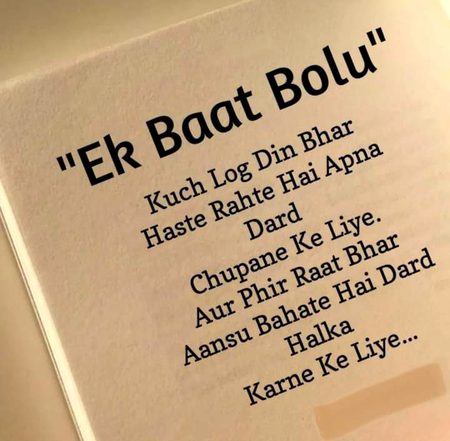 "Ek Baat Bolu"
Kuch Log Din Bhar
Haste Rahte Hai Apna
Dard
Chupane Ke Liye.
Aur Phir Raat Bhar
Aansu Bahate Hai Dard
Halka
Karne Ke Liye...